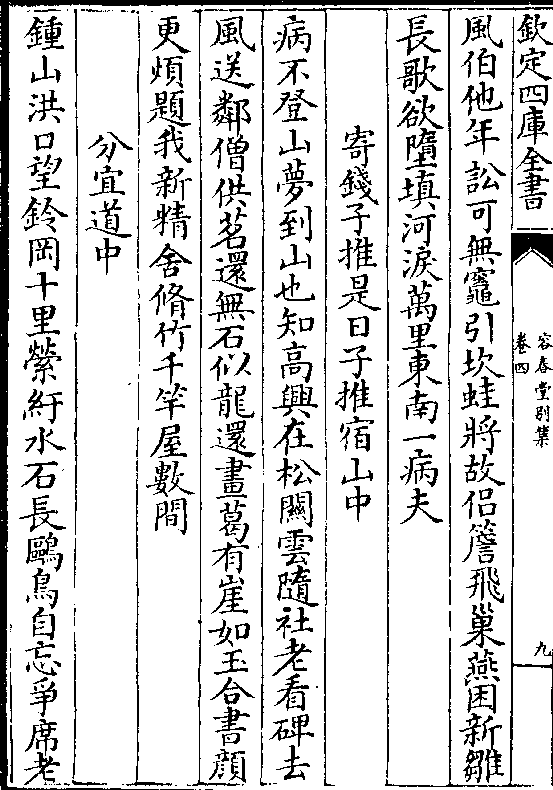 欽定四庫全書
容春堂別集
卷四
九
風伯他年訟可無竈引坎蛙將故侣簷飛巢燕困新雛
長歌欲墮填河淚萬里東南一病夫
寄錢子推是日子推宿山中
病不登山夢到山也知高興在松關雲隨社老看碑去
風送鄰僧供茗還無石似龍還畫葛有崖如玉合書顔
更煩題我新精舍脩竹千竿屋數間
分宜道中
鍾山洪口望鈴岡十里縈紆水石長鷗鳥自忘爭席老